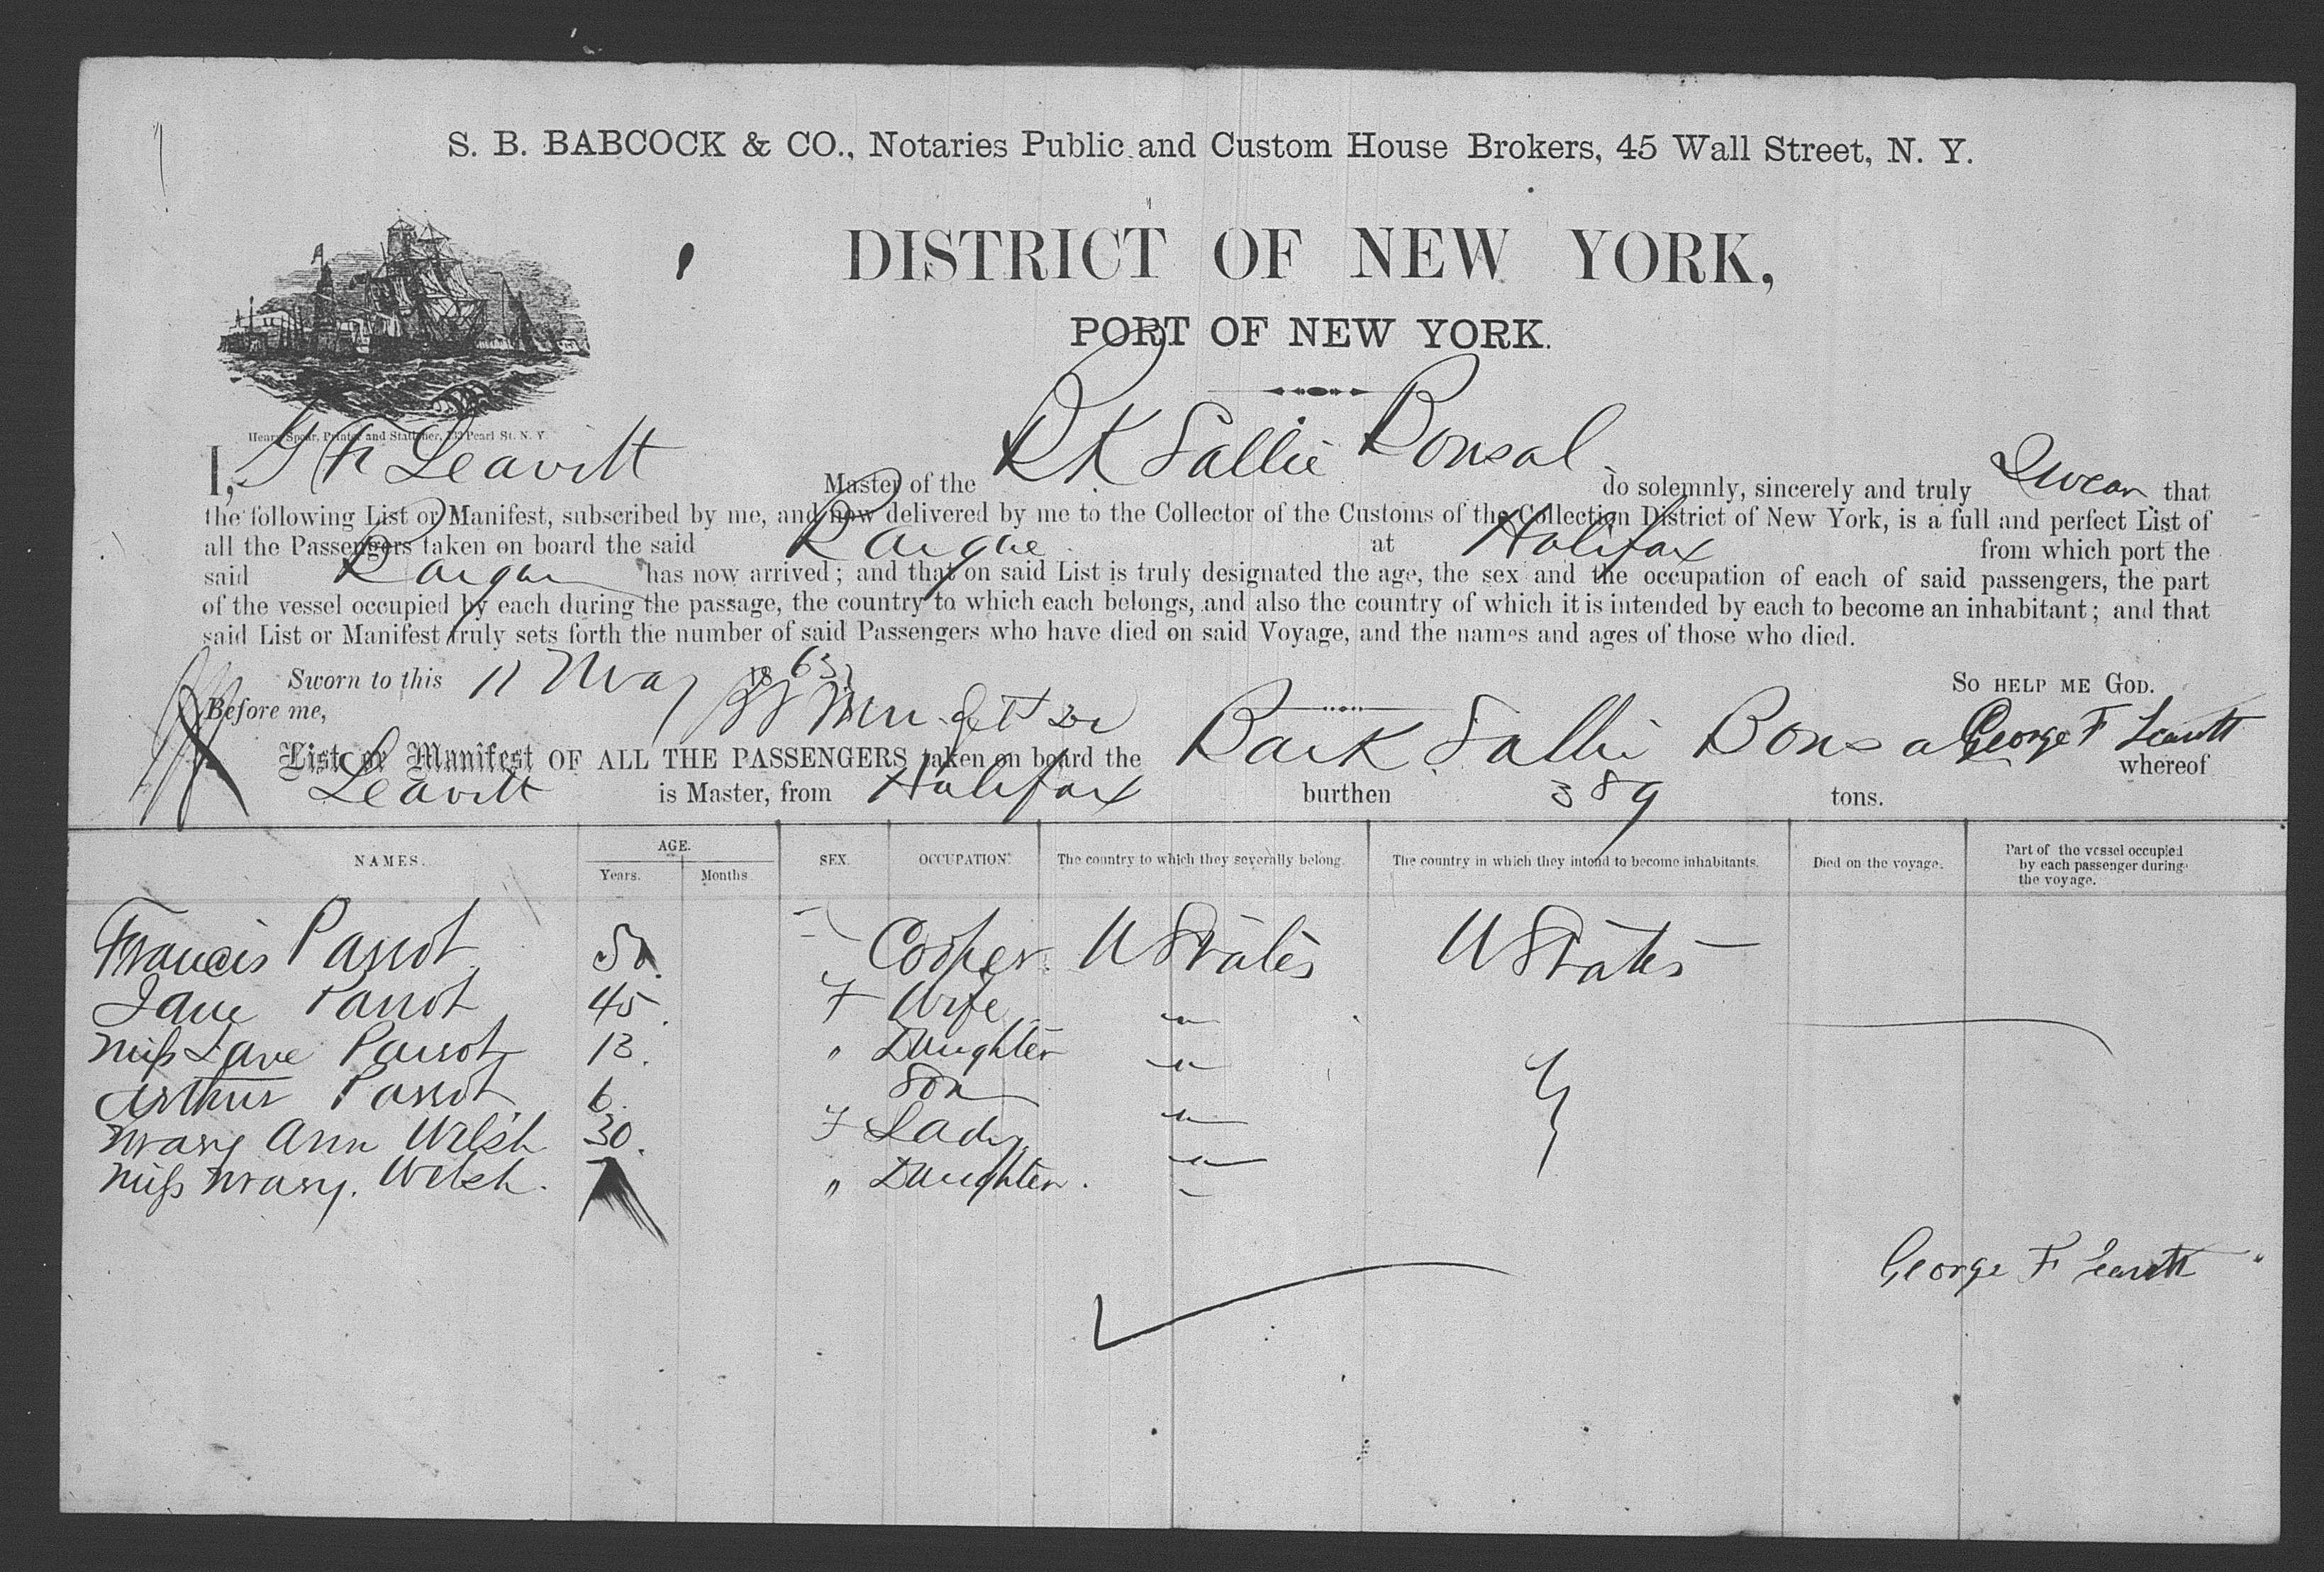 S. B. BABCOCK & CO., Notaries Public and Custom House Brokers, 45 Wall Street, N. Y.
DISTRICT OF NEW YORK,
PORT OF NEW YORK.
Henry Spear, Printer and Stationer, Pearl St. N. Y.
I, G F Leavitt Master of the BK Sallie Bonsal do solemnly, sincerely and truly Swear that
the following List or Manifest, subscribed by me, and now delivered by me to the Collector of the Customs of the Collection District of New York, is a full and perfect List of
all the Passengers taken on board the said Barque at Halifax from which port the
said Barque has now arrived; and that on said List is truly designated the age, the sex and the occupation of each of said passengers, the part
of the vessel occupied by each during the passage, the country to which each belongs, and also the country of which it is intended by each to become an inhabitant; and that
said List or Manifest truly sets forth the number of said Passengers who have died on said Voyage, and the names and ages of those who died.
Sworn to this 11 May 1863 SO HELP ME GOD.
Before me, George F Leavitt
List or Manifest OF ALL THE PASSENGERS taken on board the Bark Sallie Bonsal whereof
Leavitt is Master, from Halifax burthen 389 tons.
NAMES. AGE. Years. Months SEX. OCCUPATION. The country to which they severally belong. The country in which they intend to become inhabitants. Died on the voyage. Part of the vessel occupied by each passenger during the voyage.
Francis Parrot 50. Cooper. U States U States
Jane Parrot 45. F Wife "
Miss Jane Parrot 13. " Daughter "
Arthur Parrot 6. Son "
Mary Ann Welsh 30. F Lady "
Miss Mary. Welsh. " Daughter. "
George F Leavitt